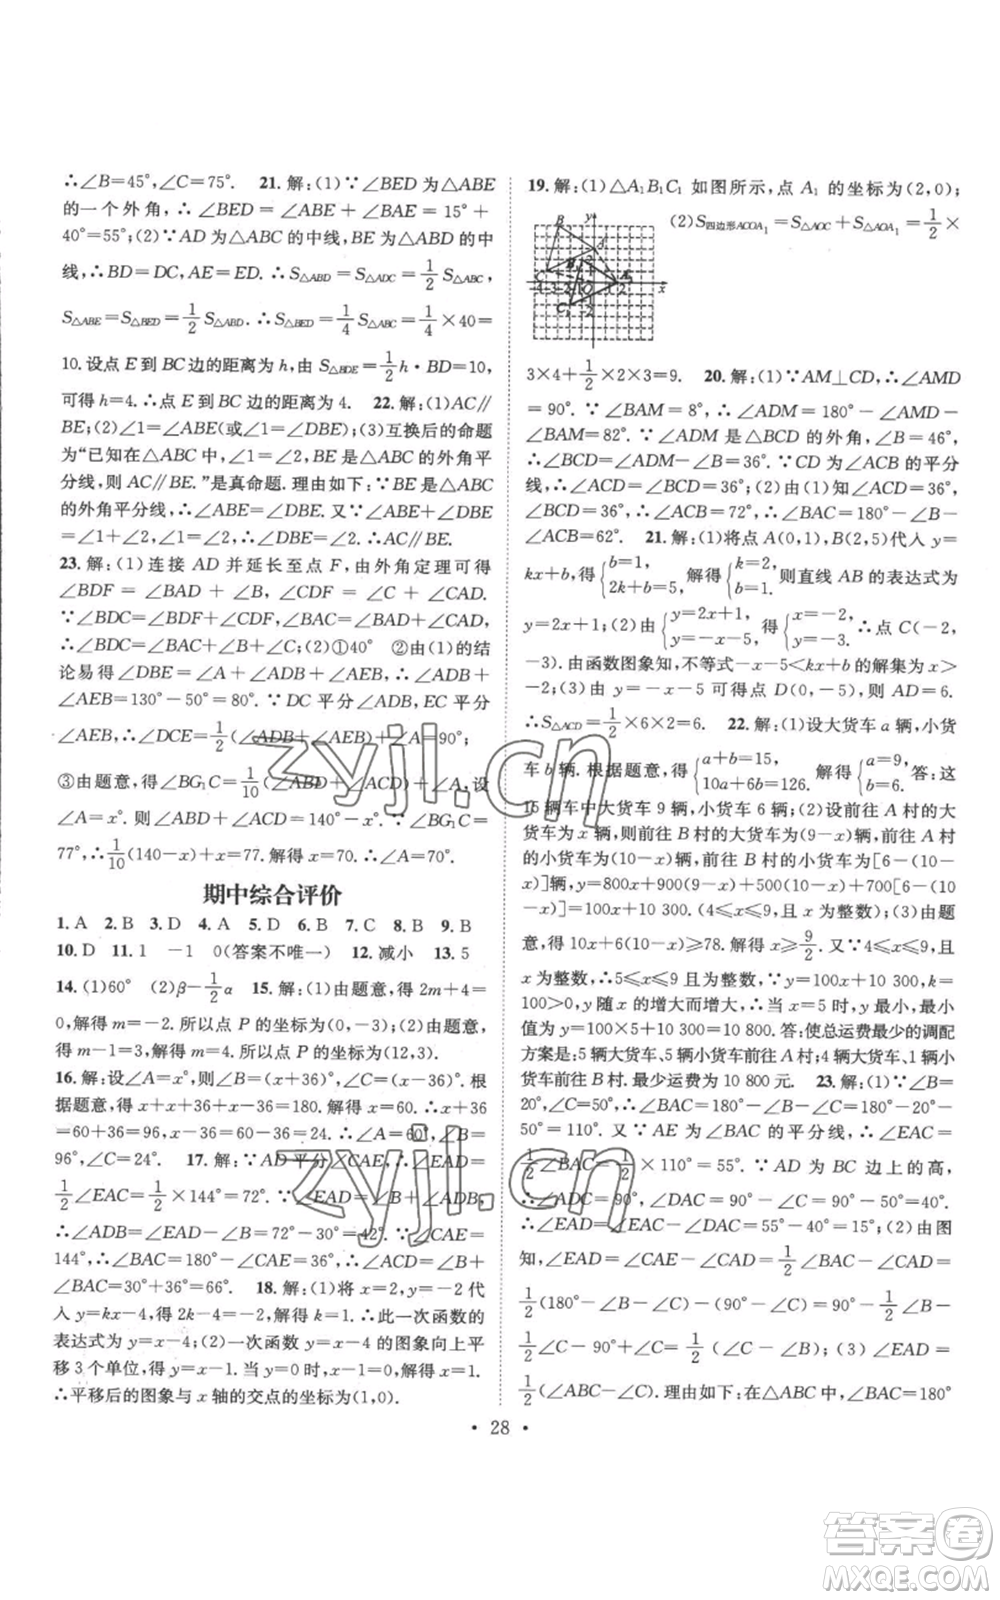 ∴∠B=45°,∠C=75°. 21.解:(1)∵∠BED为△ABE
的一个外角,∴∠BED=∠ABE+∠BAE=15°+
40°=55°;(2)∵AD为△ABC的中线,BE为△ABD的中
线,∴BD=DC,AE=ED.∴S△ABD=1/2 S△ABC,
S△ABE=S△BED=1/2 S△ABD.∴S△BED=1/4 S△ABC=1/4×40=
10.设点E到BC边的距离为h,由S△BDE=1/2 h·BD=10,
得h=4.∴点E到BC边的距离为4. 22.解:(1)AC∥
BE;(2)∠1=∠ABE(或∠1=∠DBE);(3)互换后的命题
为“已知在△ABC中,∠1=∠2,BE是△ABC的外角平
分线,则AC∥BE.”是真命题.理由如下:∵BE是△ABC
的外角平分线,∴∠ABE=∠DBE.又∵∠ABE+∠DBE
=∠1+∠2,∠1=∠2,∴∠2=∠DBE.∴AC∥BE.
23.解:(1)连接AD并延长至点F,由外角定理可得
∠BDF=∠BAD+∠B,∠CDF=∠C+∠CAD.
∵∠BDC=∠BDF+∠CDF,∠BAC=∠BAD+∠CAD,
∴∠BDC=∠BAC+∠B+∠C;(2)①40° ②由(1)的结
论易得∠DBE=∠A+∠ADB+∠AEB,∴∠ADB+
∠AEB=130°-50°=80°.∵DC平分∠ADB,EC平分
∠AEB,∴∠DCE=1/2(∠ADB+∠AEB)+∠A=90°;
③由题意,得∠BG₁C=1/10(∠ABD+∠ACD)+∠A,设
∠A=x°.则∠ABD+∠ACD=140°-x°.∵∠BG₁C=
77°,∴1/10(140-x)+x=77.解得x=70.∴∠A=70°.
期中综合评价
1.A 2.B 3.D 4.A 5.D 6.B 7.C 8.B 9.B
10.D 11.1 -1 0(答案不唯一) 12.减小 13.5
14.(1)60° (2)β-1/2 α 15.解:(1)由题意,得2m+4=
0,解得m=-2.所以点P的坐标为(0,-3);(2)由题意,
得m-1=3,解得m=4.所以点P的坐标为(12,3).
16.解:设∠A=x°,则∠B=(x+36)°,∠C=(x-36)°.根
据题意,得x+x+36+x-36=180.解得x=60.∴x+36
=60+36=96,x-36=60-36=24.∴∠A=60°,∠B=
96°,∠C=24°. 17.解:∵AD平分∠CAE,∴∠EAD=
1/2∠EAC=1/2×144°=72°.∵∠EAD=∠B+∠ADB,
∴∠ADB=∠EAD-∠B=72°-30°=42°.∵∠CAE=
144°,∴∠BAC=180°-∠CAE=36°.∴∠ACD=∠B+
∠BAC=30°+36°=66°. 18.解:(1)将x=2,y=-2代
入y=kx-4,得2k-4=-2,解得k=1.∴此一次函数的
表达式为y=x-4;(2)一次函数y=x-4的图象向上平
移3个单位,得y=x-1.当y=0时,x-1=0,解得x=1.
∴平移后的图象与x轴的交点的坐标为(1,0).
19.解:(1)△A₁B₁C₁如图所示,点A₁的坐标为(2,0);
(2)S四边形ACOA₁=S△AOC+S△AOA₁=1/2×
3×4+1/2×2×3=9. 20.解:(1)∵AM⊥CD,∴∠AMD
=90°.∵∠BAM=8°,∴∠ADM=180°-∠AMD-
∠BAM=82°.∵∠ADM是△BCD的外角,∠B=46°,
∴∠BCD=∠ADM-∠B=36°.∵CD为∠ACB的平分
线,∴∠ACD=∠BCD=36°;(2)由(1)知∠ACD=36°,
∠BCD=36°,∴∠ACB=72°,∴∠BAC=180°-∠B-
∠ACB=62°. 21.解:(1)将点A(0,1),B(2,5)代入y=
kx+b,得{b=1, 2k+b=5, 解得{k=2, b=1, 则直线AB的表达式为
y=2x+1;(2)由{y=2x+1, y=-x-5, 得{x=-2, y=-3. ∴点C(-2,
-3).由函数图象知,不等式-x-5<kx+b的解集为x>
-2;(3)由y=-x-5可得点D(0,-5),则AD=6.
∴S△ACD=1/2×6×2=6. 22.解:(1)设大货车a辆,小货
车b辆.根据题意,得{a+b=15, 10a+6b=126. 解得{a=9, b=6. 答:这
15辆车中大货车9辆,小货车6辆;(2)设前往A村的大
货车为x辆,则前往B村的大货车为(9-x)辆,前往A村
的小货车为(10-x)辆,前往B村的小货车为[6-(10-
x)]辆,y=800x+900(9-x)+500(10-x)+700[6-
(10-x)]=100x+10 300.(4≤x≤9,且x为整数);(3)由题
意,得10x+6(10-x)≥78.解得x≥9/2.又∵4≤x≤9,且
x为整数,∴5≤x≤9且为整数.∵y=100x+10 300,k=
100>0,y随x的增大而增大,∴当x=5时,y最小,最小
值为y=100×5+10 300=10 800.答:使总运费最少的调配
方案是:5辆大货车、5辆小货车前往A村;4辆大货车、1辆小
货车前往B村.最少运费为10 800元. 23.解:(1)∵∠B=
20°,∠C=50°,∴∠BAC=180°-∠B-∠C=180°-20°-
50°=110°.又∵AE为∠BAC的平分线,∴∠EAC=
1/2∠BAC=1/2×110°=55°.∵AD为BC边上的高,
∴∠ADC=90°.∴∠DAC=90°-∠C=90°-50°=40°.
∴∠EAD=∠EAC-∠DAC=55°-40°=15°;(2)由图
知,∠EAD=∠CAE-∠CAD=1/2∠BAC-∠CAD=
1/2(180°-∠B-∠C)-(90°-∠C)=90°-1/2∠B-
1/2∠C-90°+∠C=1/2(∠C-∠B);(3)∠EAD=
1/2(∠B-∠C).理由如下:在△ABC中,∠BAC=180°
·28·
zyjl.cn
zyjl.cn
答案圈
MXQE.COM